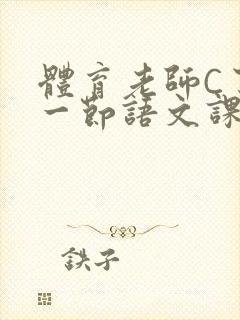 體育老師C了
一節語文課
鉄子